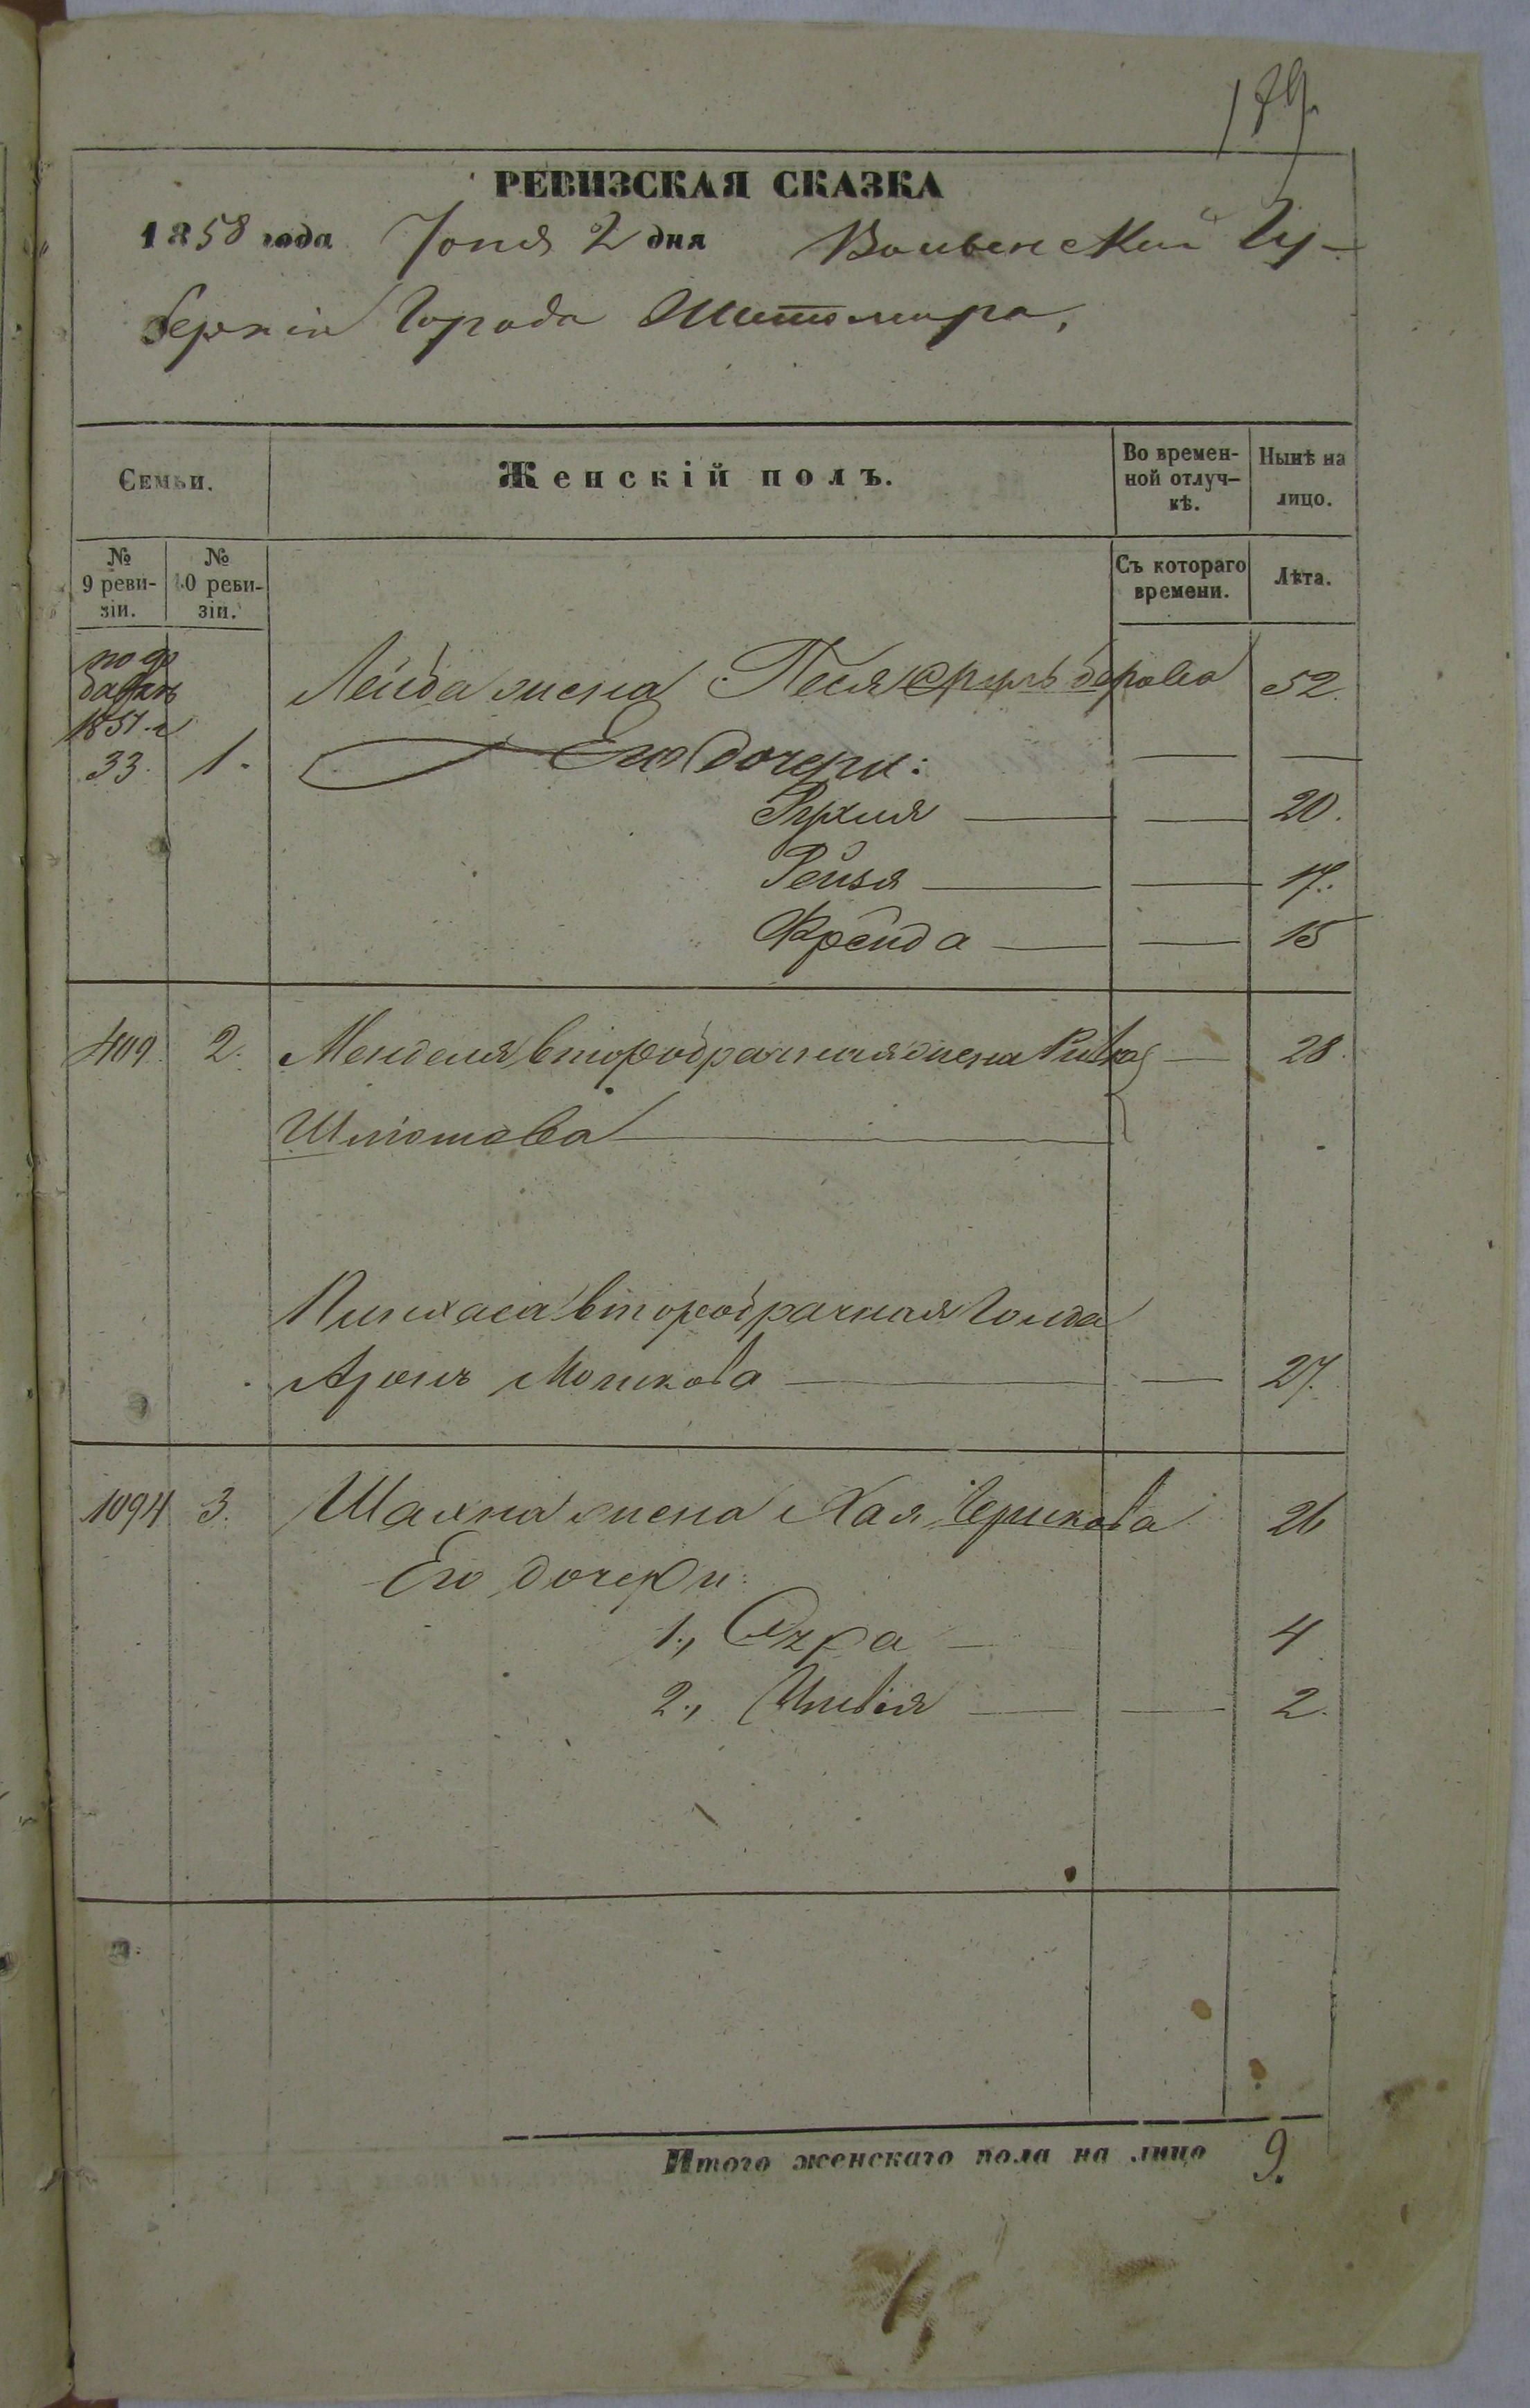 179.
РЕВИЗСКАЯ СКАЗКА
1858 года Іюня 2 дня Волынской Гу-
берніи Города Житомира,
Семьи.
Женскій полъ.
Во времен-
ной отлуч-
кѣ.
Нынѣ на
лицо.
№
9 реви-
зіи.
№
10 реви-
зіи.
Съ котораго
времени.
Лѣта.
1851 г
33. 1.
Лейба жена Песя 52
Его дочери:
Рухля 20.
Рейзя 17.
Фрейда 15
409 2. Менделя второбрачная жена Ривка 28
Шліомова
Пинхаса второбрачная Голда
Аронъ Мошкова 27.
1094 3. Шахна жена Хая Берикова 26
Его дочери:
1., Сура 4
2., Цивія 2.
Итого женскаго пола на лицо 9.